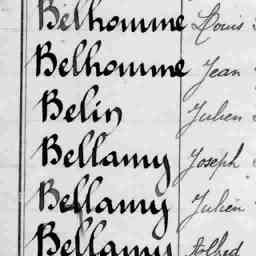 Belhomme Louis
Belhomme Jean
Belin Julien
Bellamy Joseph
Bellamy Julien
Bellamy Alfred